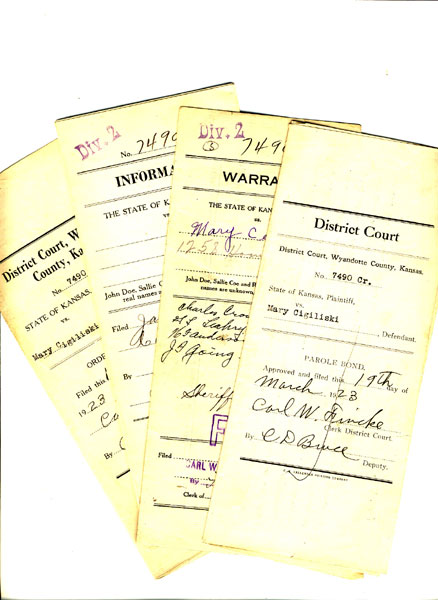 District Court, Wy
County, Ka
No. 7490
STATE OF KANSAS,
vs.
Mary Cigiliski
ORDE
Filed this
1923
By
Div. 2
No. 7490
INFORMA
THE STATE OF KAN
vs.
John Doe, Sallie Co
real names a
Filed
By
Div. 2
3 7490
WARRA
THE STATE OF KANS
vs.
Mary C
John Doe, Sallie Coe and R
names are unknown
J F Going
Sheriff
F
Filed
CARL W
By
Clerk of
District Court
District Court, Wyandotte County, Kansas.
No. 7490 Cr.
State of Kansas, Plaintiff,
vs.
Mary Cigiliski
Defendant.
PAROLE BOND.
Approved and filed this 19th day of
March 1923
Carl W. Fincke
Clerk District Court.
By C D Bruce
Deputy.